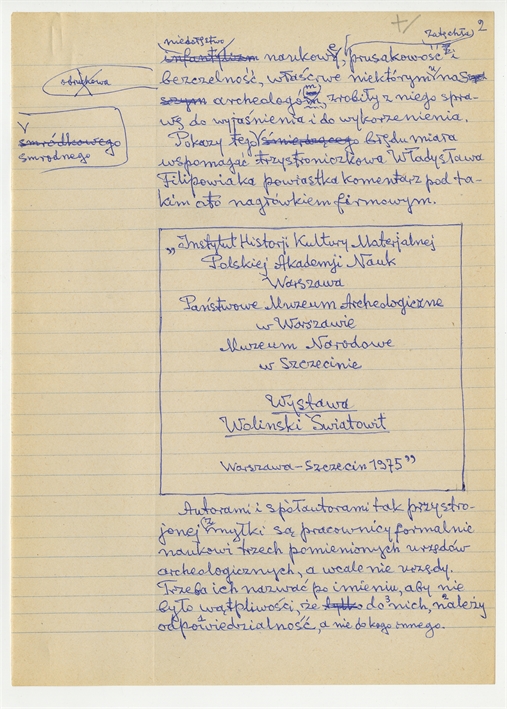 2
niedołęstwo
zatęchła
infantylizm naukowy, prusakowość i
obrukowa
bezczelność, właściwe niektórym na
szym archeologóm zrobiły z niego spra-
wę do wyjaśnienia i do wykorzenienia.
V
smródkowego
smrodnego
Pokazy tej V śmierdzącego błędu miara
wspomagać trzystroniczkowa Władysława
Filipowiaka powiastka komentarz pod ta-
kim oto nagłówkiem firmowym.
„Instytut Historji Kultury Materjalnej
Polskiej Akademji Nauk
Warszawa
Państwowe Muzeum Archeologiczne
w Warszawie
Muzeum Narodowe
w Szczecinie
Wystawa
Woliński Światowit
Warszawa–Szczecin 1975”
Autorami i spółautorami tak przystro-
jonej zmyłki są pracownicy formalnie
naukowi trzech pomienionych urzędów
archeologicznych, a wcale nie urzędy.
Trzeba ich nazwać po imieniu, aby nie
było wątpliwości, że tylko do nich, należy
odpowiedzialność, a nie do kogo innego.